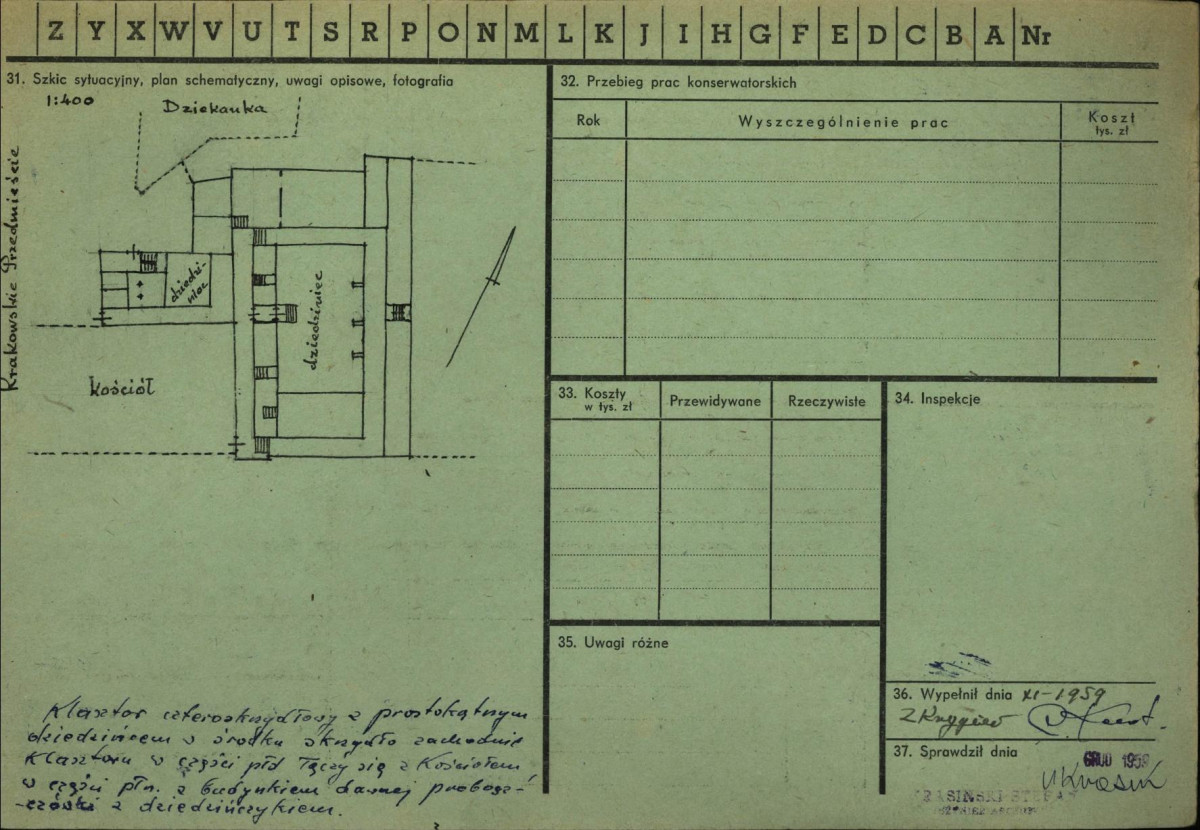 Z Y X W V U T S R P O N M L K J I H G F E D C B A Nr
31. Szkic sytuacyjny, plan schematyczny, uwagi opisowe, fotografia
1:400
Dziekanka
Krakowskie Przedmieście
dziedzi-
niec
dziedziniec
Kościół
Klasztor czteroskrzydłowy z prostokątnym
dziedzińcem w środku skrzydło zachodnie
Klasztoru w części płd łączy się z Kościołem,
w części płn. z budynkiem dawnej probosz-
-czówki z dziedzińczykiem.
32. Przebieg prac konserwatorskich
Rok
Wyszczególnienie prac
Koszt
tys. zł
33. Koszty
w tys. zł
Przewidywane
Rzeczywiste
34. Inspekcje
35. Uwagi różne
36. Wypełnił dnia XI-1959
37. Sprawdził dnia
GRUD 1959